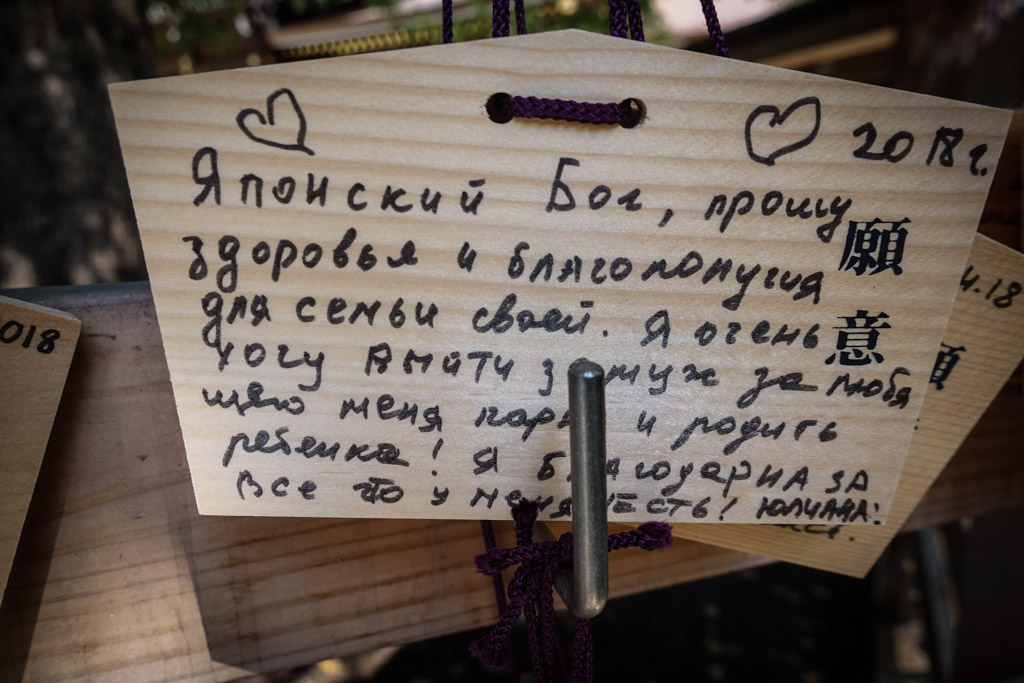 2018г.
Японский Бог, прошу
здоровья и благополучия
для семьи своей. Я очень
хочу выйти замуж за любя
щего меня парня и родить
ребенка! Я благодарна за
все что у меня есть! Юлиана!
願
意
018
4.18
願